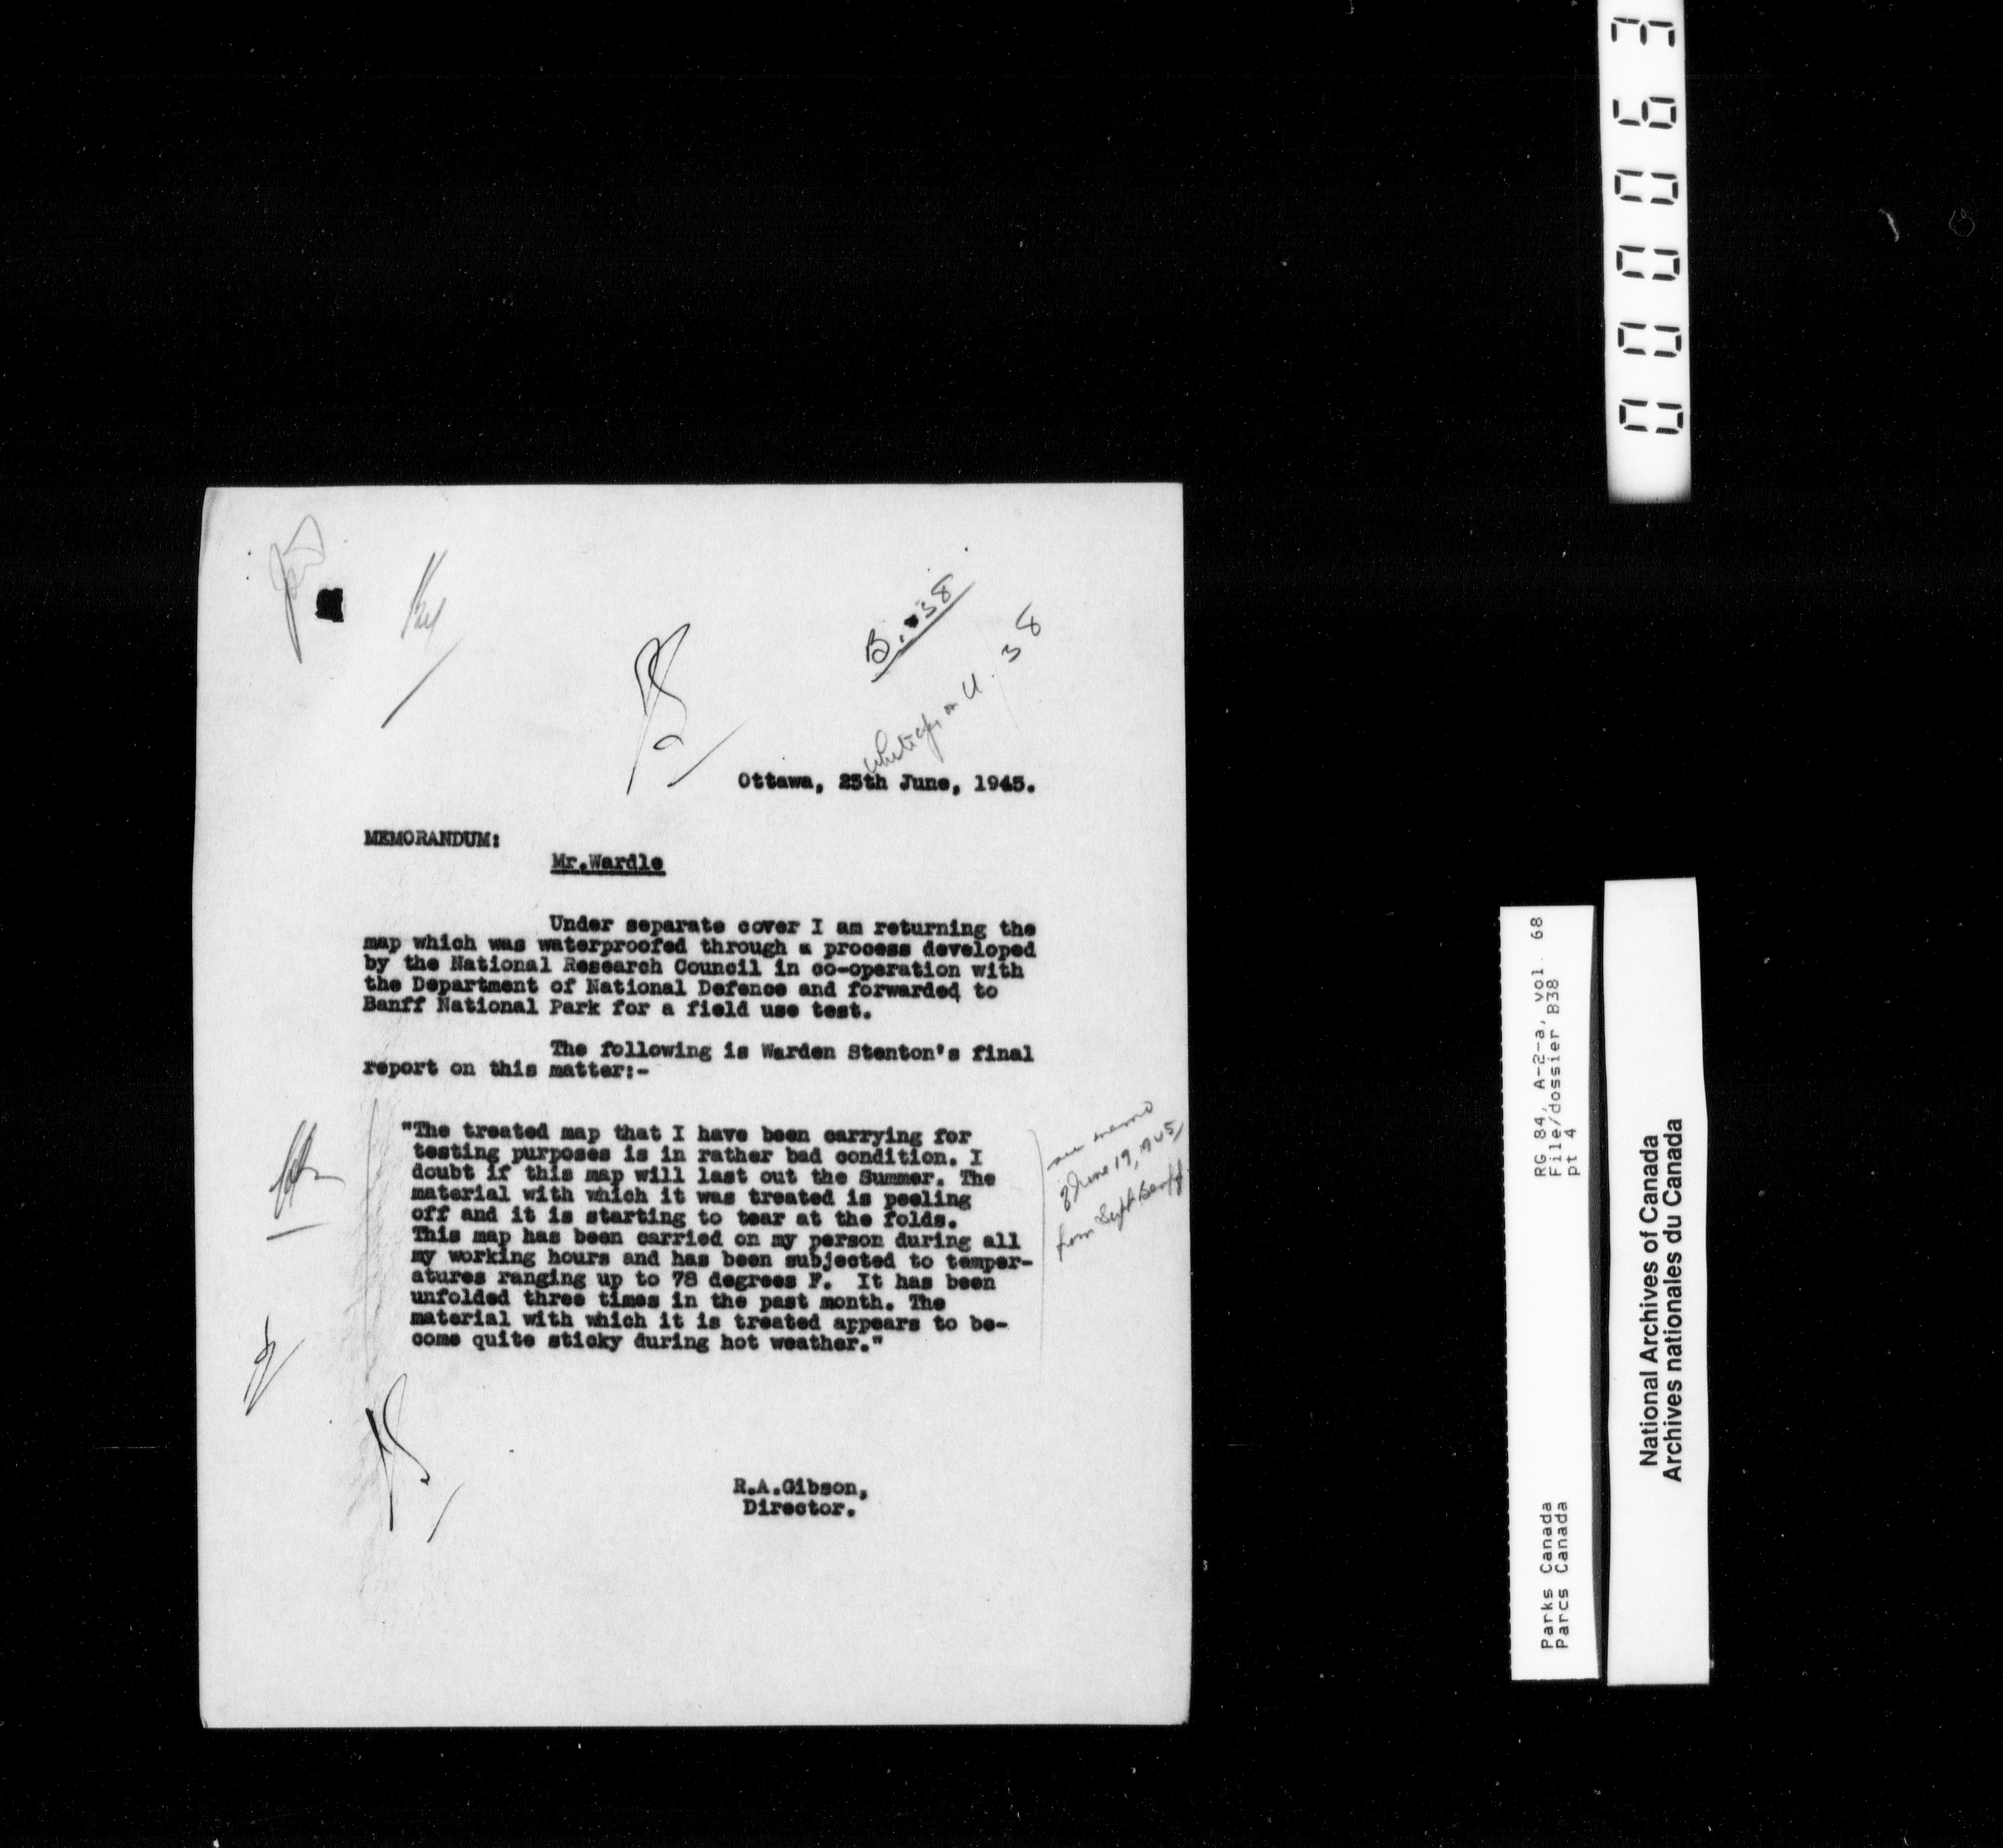 B. 38
White copy on U. 38
Ottawa, 25th June, 1945.
MEMORANDUM:
Mr.Wardle
Under separate cover I am returning the
map which was waterproofed through a process developed
by the National Research Council in co-operation with
the Department of National Defence and forwarded to
Banff National Park for a field use test.
The following is Warden Stenton's final
report on this matter:-
"The treated map that I have been carrying for
testing purposes is in rather bad condition. I
doubt if this map will last out the Summer. The
material with which it was treated is peeling
off and it is starting to tear at the folds.
This map has been carried on my person during all
my working hours and has been subjected to temper-
atures ranging up to 78 degrees F. It has been
unfolded three times in the past month. The
material with which it is treated appears to be-
come quite sticky during hot weather."
see memo
of June 19, 1945
from Supt Banff.
R.A.Gibson,
Director.
000063
RG 84, A-2-a, vol. 68
File/dossier B38
pt 4
Parks Canada
Parcs Canada
National Archives of Canada
Archives nationales du Canada